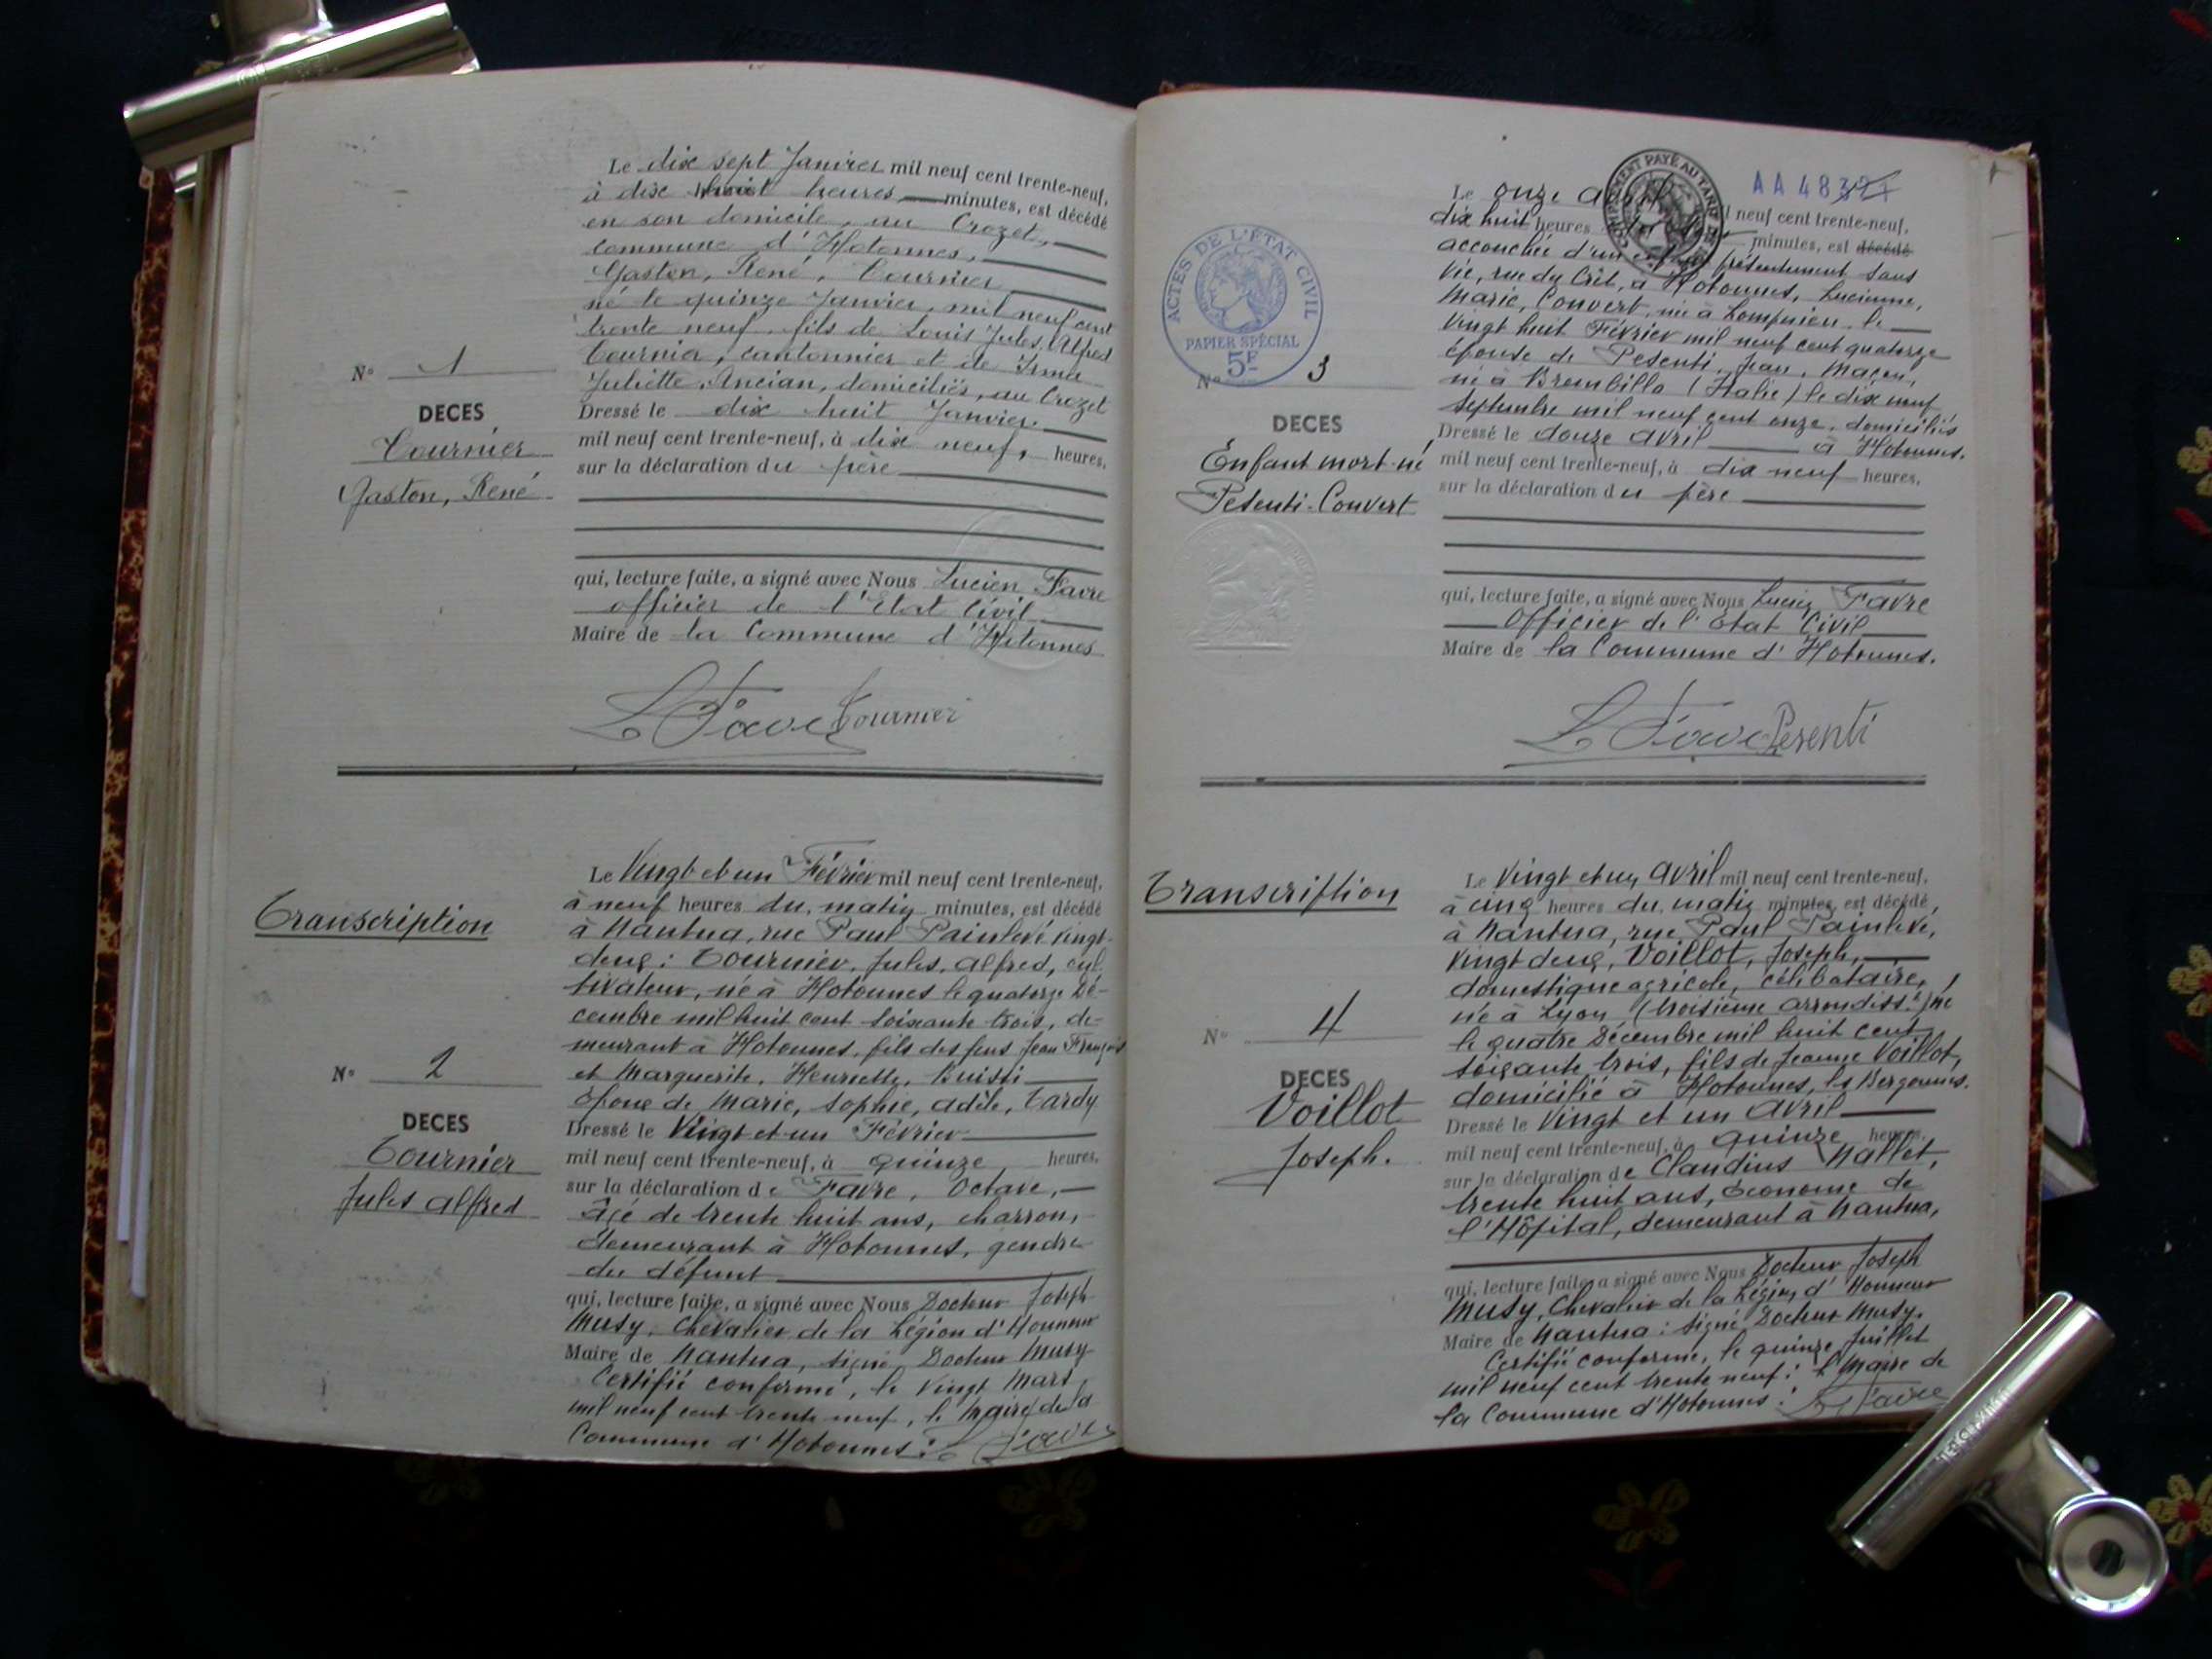 Le dix sept Janvier mil neuf cent trente-neuf,
à dix huit heures minutes, est décédé
en son domicile, au Crozet,
commune d'Hotonnes,
Gaston, René, Tournier
né le quinze Janvier, mil neuf cent
trente neuf, fils de Louis Jules, Alfred
Tournier, cantonnier et de Irma
Juliette, Ancian, domiciliés, au Crozet
Dressé le dix huit Janvier.
mil neuf cent trente-neuf, à dix neuf, heures,
sur la déclaration du père
qui, lecture faite, a signé avec Nous Lucien Favre
officier de l'Etat Civil
Maire de la Commune d'Hotonnes
L Favre Tournier
N° 1
DECES
Tournier
Gaston, René
Transcription
N° 2
DECES
Tournier
Jules Alfred
Le Vingt et un Février mil neuf cent trente-neuf,
à neuf heures du matin minutes, est décédé
à Nantua, rue Paul Painlevé vingt-
deux: Tournier, Jules, Alfred, cul
tivateur, né à Hotonnes le quatorze Dé-
cembre mil huit cent soixante trois, de-
meurant à Hotonnes, fils des feus Jean François
et Marguerite, Henriette, Buisti
époux de Marie, Sophie, Adèle, Tardy
Dressé le Vingt et un Février
mil neuf cent trente-neuf, à quinze heures,
sur la déclaration de Favre, Octave,
âgé de trente huit ans, charron,
demeurant à Hotonnes, gendre
du défunt
qui, lecture faite, a signé avec Nous Docteur Joseph
Musy, Chevalier de la Légion d'Honneur
Maire de Nantua, signé Docteur Musy
Certifié conforme, le vingt Mars
mil neuf cent trente neuf, le Maire de la
Commune d'Hotonnes: L Favre
AA 48
COMPLEMENT PAYÉ AU TARIF DE
ACTES DE L'ÉTAT CIVIL
PAPIER SPÉCIAL
5F
N° 3
DECES
Enfant mort-né
Pesenti-Convert
Le onze avril neuf cent trente-neuf,
dix huit heures minutes, est décédé
accouchée d'un présentement sans
vie, rue du Crêt, à Hotonnes, Lucienne,
Marie, Convert, née à Lompnieu le
vingt huit Février mil neuf cent quatorze
épouse de Pesenti, Jean, Maçon,
né à Brembilla (Italie) le dix neuf
Septembre mil neuf cent onze, domiciliés
Dressé le douze avril à Hotonnes.
mil neuf cent trente-neuf, à dix neuf heures,
sur la déclaration du père
qui, lecture faite, a signé avec Nous Lucien Favre
Officier de l'Etat Civil
Maire de la Commune d'Hotonnes.
L Favre Pesenti
Transcription
N° 4
DECES
Voillot
Joseph.
Le Vingt et un Avril mil neuf cent trente-neuf,
à cinq heures du matin minutes, est décédé,
à Nantua, rue Paul Painlevé,
vingt deux, Voillot, Joseph,
domestique agricole, célibataire,
né à Lyon (troisième arrondiss.t)
le quatre Décembre mil huit cent
soixante trois, fils de Jeanne Voillot,
domicilié à Hotonnes, les Bergonnes.
Dressé le Vingt et un Avril
mil neuf cent trente-neuf, à quinze heures,
sur la déclaration de Claudius Nallet,
trente huit ans, économe de
l'Hôpital, demeurant à Nantua,
qui, lecture faite, a signé avec Nous Docteur Joseph
Musy, Chevalier de la Légion d'Honneur
Maire de Nantua: signé Docteur Musy.
Certifié conforme, le quinze Juillet
mil neuf cent trente neuf: l'Maire de
la Commune d'Hotonnes: L Favre